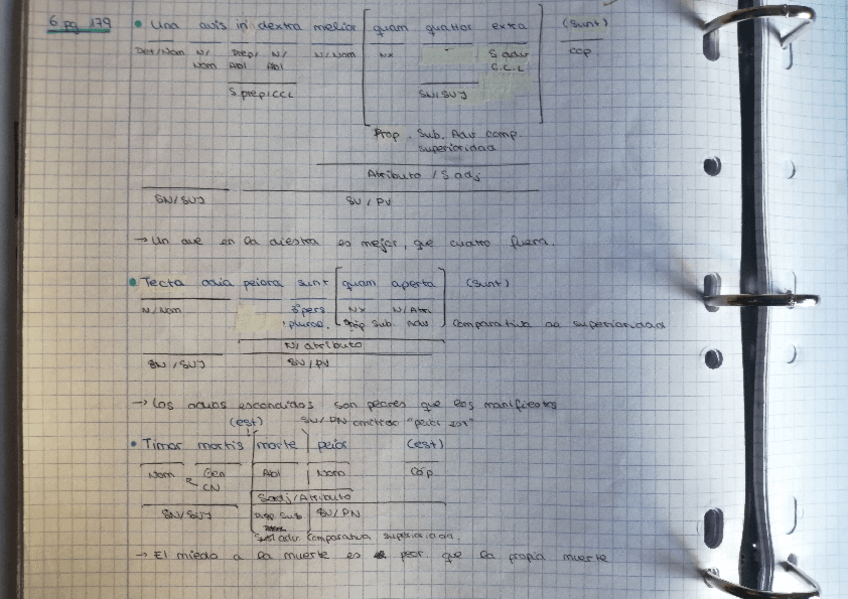 6 pg 179
• Una avis in dextra melior [quam quattor extra] (sunt)
Det/Nom N/Nom Prep/Abl N/Abl N/Nom NX S adv C.C.L Cóp
S.prep/CCL SN/SUJ
Prop. Sub. Adv comp. superioridad
Atributo / S adj
SN/SUJ SV / PV
→ Un ave en la diestra es mejor, que cuatro fuera.
• Tecta odia peiora sunt [quam aperta] (sunt)
N/Nom 3ª pers plural NX N/Atri
Prop Sub. Adv comparativa de superioridad
N/atributo
SN/SUJ SN/PV
→ Los odios escondidos son peores que los manifiestos
(est) SV/PN
• Timor mortis morte peior (est)
Nom Gen CN Abl Nom Cóp
Sadj/Atributo
SN/SUJ Prop Sub SV/PN
adv comparativa superioridad.
→ El miedo a la muerte es peor que la propia muerte